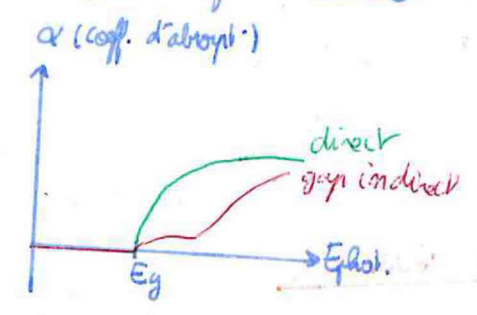 α (coeff. d'absorpt°)
direct
gap indirect
Eg
Ephot.